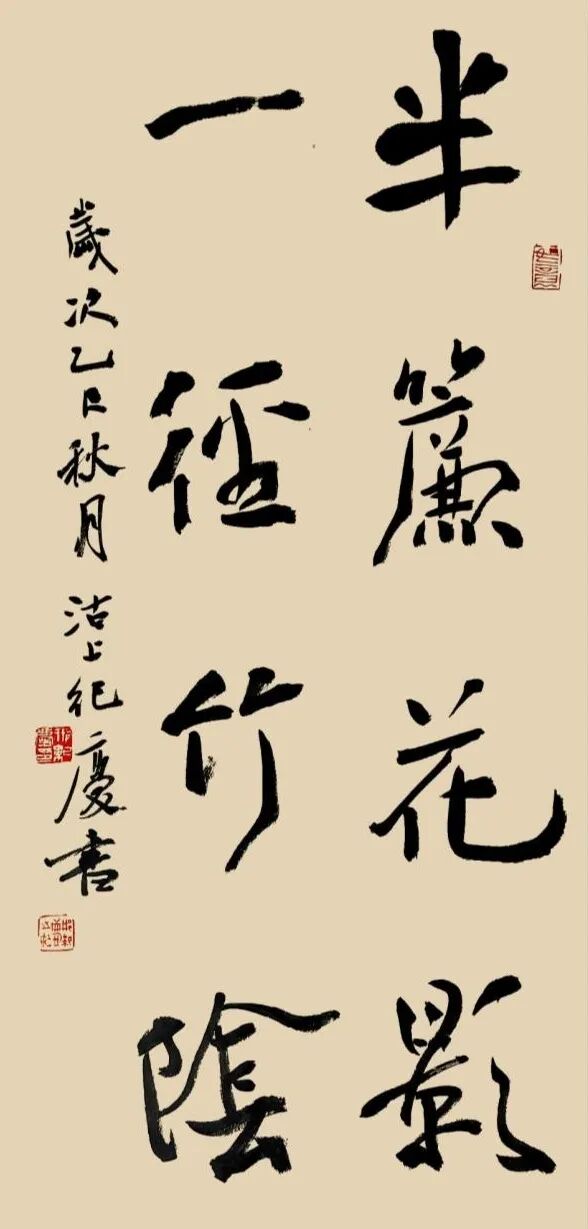 半簾花影
一徑竹陰
歲次乙巳秋月沽上紀慶書